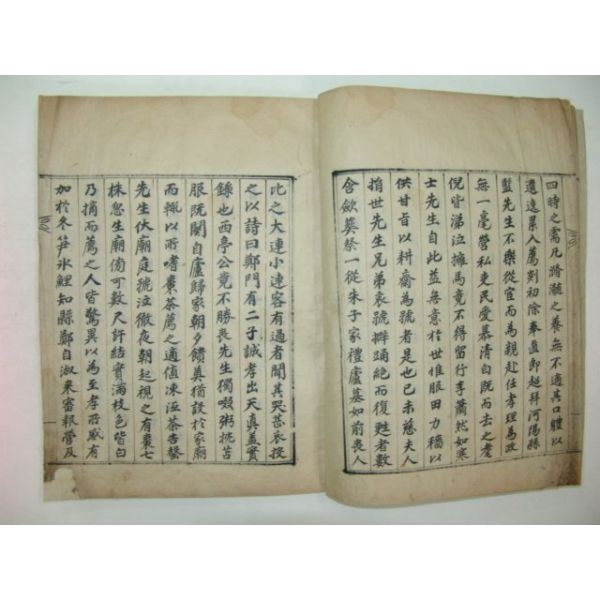 四時之需凡滫瀡之養無不適其口體以
遺逸累入薦剡初除奉直郎超拜河陽縣
監先生不樂從宦而為親赴任李理為政
無一毫營私吏民愛慕清白旣而去之耄
倪皆涕泣擁馬竟不得留行李蕭然如寒
士先生自此益無意於世惟服田力穡以
供甘旨以耕齋為號者是也己未慈夫人
捐世先生兄弟哀號擗踊絶而復甦者數
含斂葬祭一從朱子家禮廬墓如前喪人
比之大連小連客有過者聞其哭甚哀投
之以詩曰鄭門有二子誠孝出天真盖實
錄也西亭公竟不勝喪先生獨啜粥枕苫
服旣闋自廬歸家朝夕饋奠猶設於家廟
而輒以所嗜棗茶薦之適値凍沍茶告罄
先生伏廟庭號泣徹夜朝起視之有棗七
株忽生廟傍可數尺許結實滿枝色皆白
乃摘而薦之人皆驚異以為至孝所感有
加於冬笋氷鯉知縣鄭自淑來審報營及